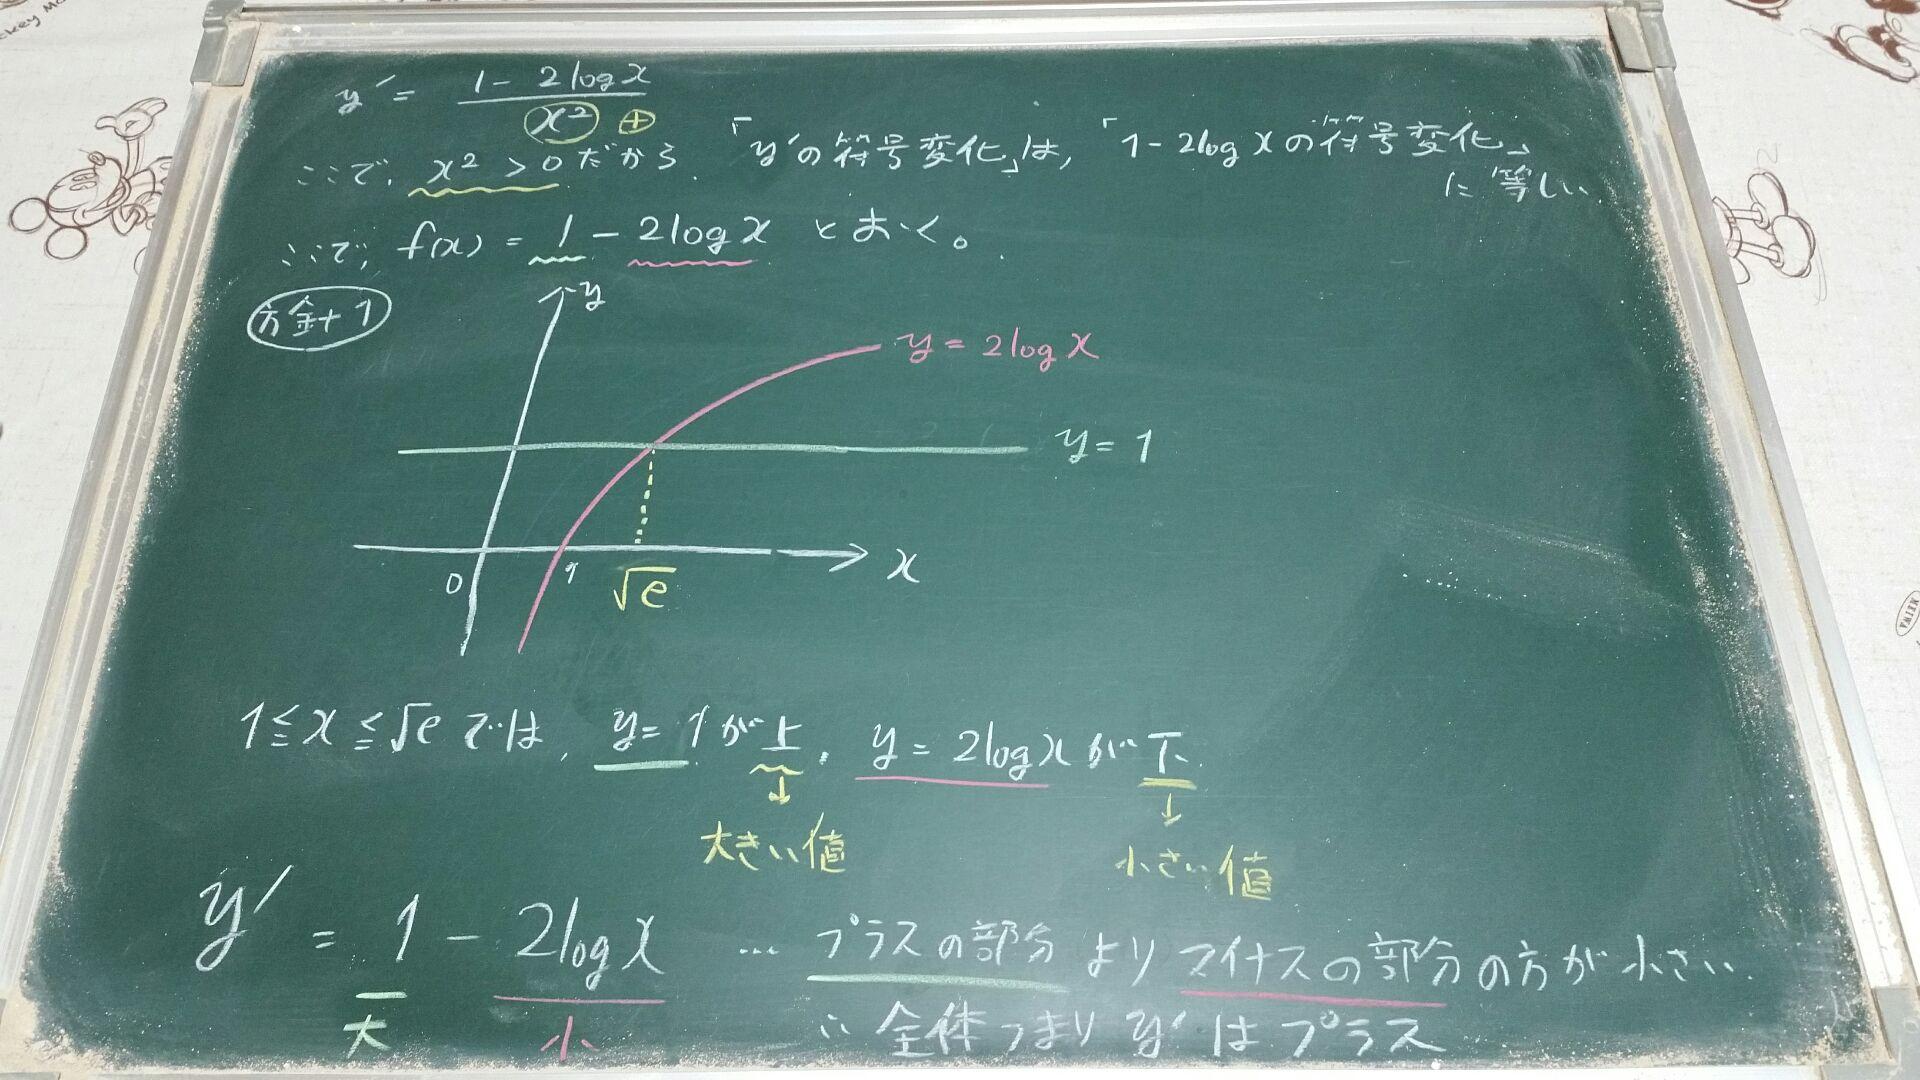 y' = (1 - 2logx)/x² ⊕
ここで, x² > 0 だから, 「y'の符号変化」は, 「1 - 2logxの符号変化」
に等しい.
ここで, f(x) = 1 - 2logx とおく。
方針1
y
y = 2logx
y = 1
0 1 √e x
1 ≦ x ≦ √e では, y = 1 が上, y = 2logx が下.
↓ ↓
大きい値 小さい値
y' = 1 - 2logx … プラスの部分よりマイナスの部分の方が小さい.
大 小 ∴ 全体つまり y' はプラス
NEIWA